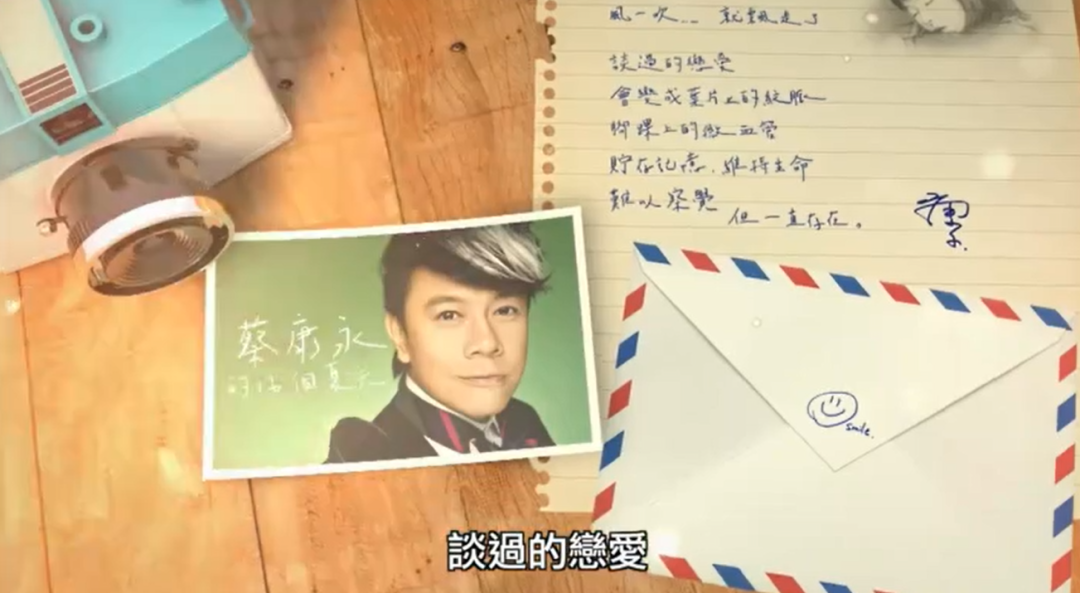 風一吹…就飄走了
談過的戀愛
會變成葉片上的紋脈
腳踝上的微血管
貯存記憶．維持生命
難以察覺
但一直存在。
蔡康永
的仿個夏天
smile.
談過的戀愛